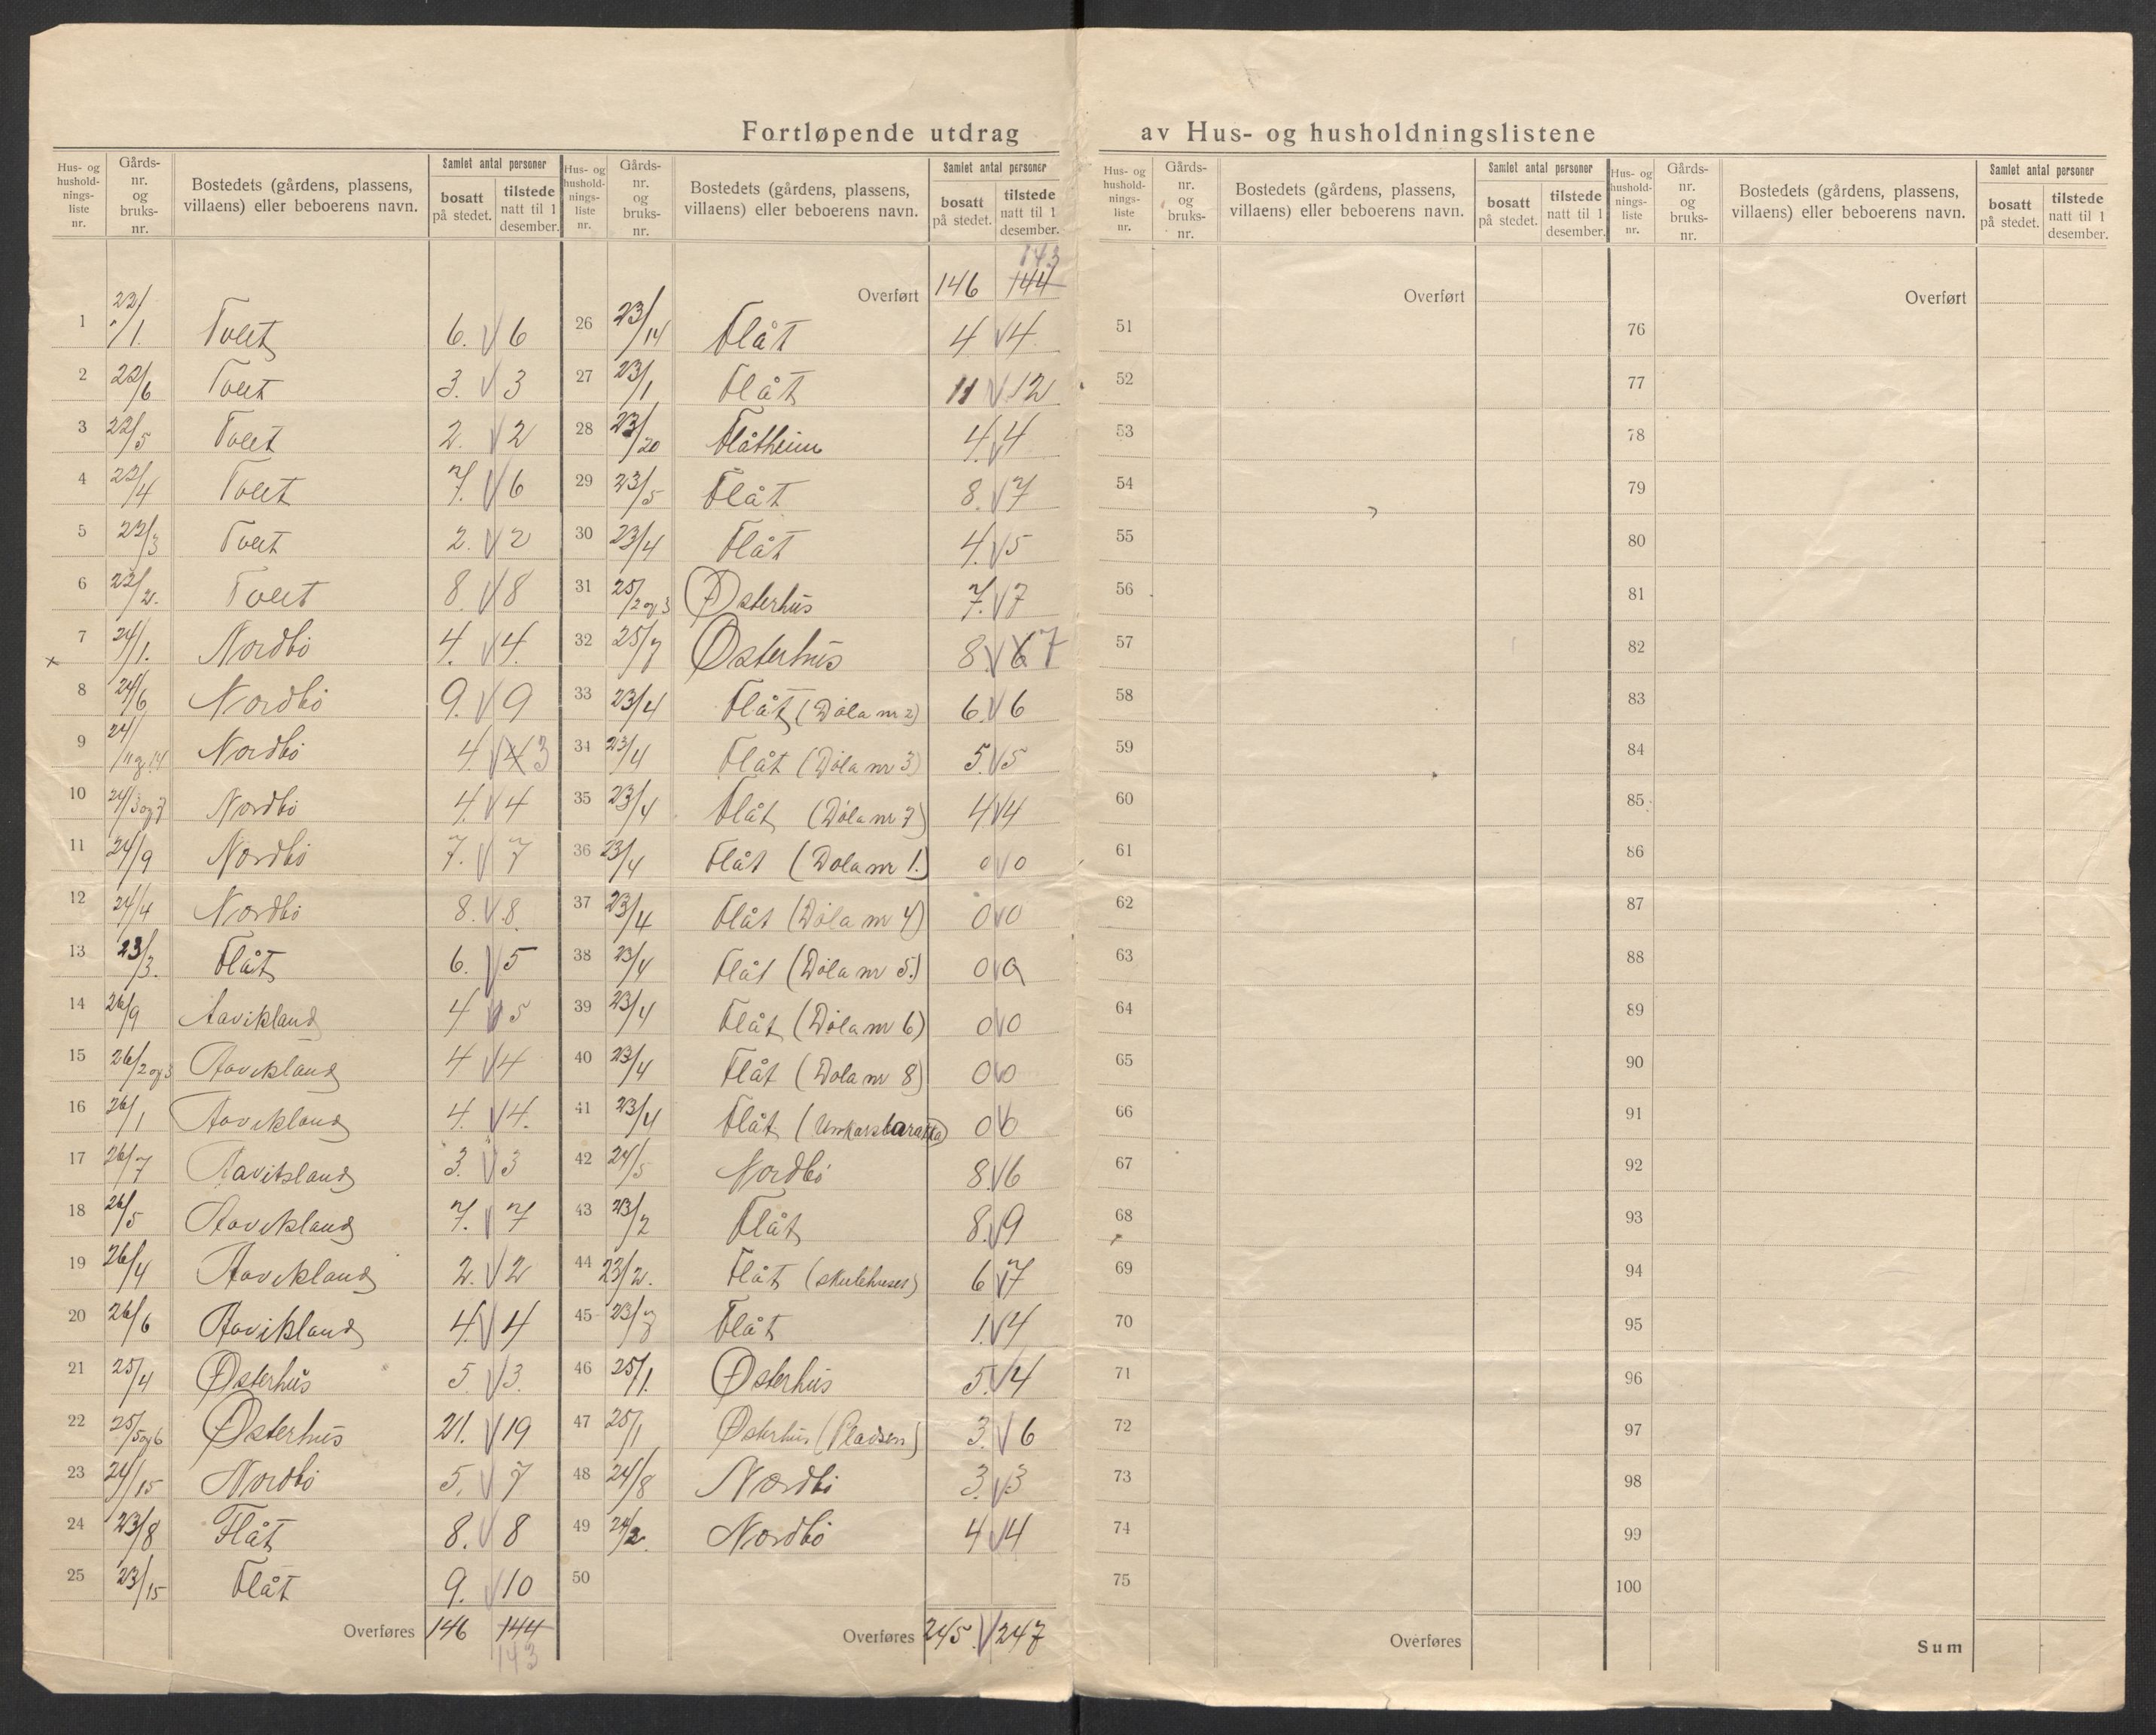 Fortløpende utdrag av Hus- og husholdningslistene
Hus- og husholdnings-liste nr. Gårds-nr. og bruks-nr. Bostedets (gårdens, plassens, villaens) eller beboerens navn. Samlet antal personer bosatt på stedet. tilstede natt til 1 desember.
1 22/1. Tveit 6. V 6
2 22/6 Tveit 3. V 3
3 22/5 Tveit 2. V 2
4 22/4 Tveit 7. V 6
5 22/3 Tveit 2. V 2
6 22/2. Tveit 8. V 8
7 24/1. Nordbö 4. V 4.
x
8 24/6 Nordbö 9. V 9
9 24/11 og 14 Nordbö 4. V 4 3
10 24/3 og 7 Nordbö 4. V 4
11 24/9 Nordbö 7. V 7
12 24/4 Nordbö 8. V 8.
13 23/3. Flåt 6. V 5
14 26/9 Aavikland 4 V 5
15 26/2 og 3 Aavikland 4 V 4
16 26/1 Aavikland 4. V 4.
17 26/7 Aavitsland 3. V 3
18 26/5 Aavikland 7. V 7
19 26/4 Aavikland 2. V 2
20 26/6 Aavikland 4. V 4
21 25/4 Østerhus 5. V 3.
22 25/5 og 6 Østerhus 21. V 19
23 24/15 Nordbö 5. V 7
24 23/8 Flåt 8. V 8
25 23/15 Flåt 9. V 10
Overføres 146 144
143
Hus- og husholdnings-liste nr. Gårds-nr. og bruks-nr. Bostedets (gårdens, plassens, villaens) eller beboerens navn. Samlet antal personer bosatt på stedet. tilstede natt til 1 desember.
143
Overført 146 144
26 23/14 Flåt 4 V 4
27 23/1 Flåt 11 V 12
28 23/20 Flåtheim 4. V 4
29 23/5 Flåt 8. V 7
30 23/4 Flåt 4. V 5
31 25/2 og 3 Østerhus 7. V 7
32 25/7 Østerhus 8. V 6 7
33 23/4 Flåt (Döla nr 2) 6. V 6
34 23/4 Flåt (Döla nr 3) 5. V 5
35 23/4 Flåt (Döla nr 7) 4. V 4
36 23/4 Flåt (Döla nr 1.) 0 V 0
37 23/4 Flåt (Döla nr 4) 0 V 0
38 23/4 Flåt (Döla nr 5.) 0 V 0
39 23/4 Flåt (Döla nr 6) 0 V 0
40 23/4 Flåt (Döla nr 8) 0 V 0
41 23/4 Flåt 0 V 0
42 24/5 Nordbö 8. V 6
43 23/2 Flåt 8. V 9
44 23/2. Flåt (skulehuset) 6 V 7
45 23/7 Flåt 1. V 4
46 25/1. Østerhus 5. V 4
47 25/1 Østerhus (Pladsen) 3. V 6
48 24/8 Nordbö 3. V 3
49 24/2. Nordbö 4 V 4
50
Overføres 245. V 247
Hus- og husholdnings-liste nr. Gårds-nr. og bruks-nr. Bostedets (gårdens, plassens, villaens) eller beboerens navn. Samlet antal personer bosatt på stedet. tilstede natt til 1 desember.
Overført
51
52
53
54
55
56
57
58
59
60
61
62
63
64
65
66
67
68
69
70
71
72
73
74
75
Overføres
Hus- og husholdnings-liste nr. Gårds-nr. og bruks-nr. Bostedets (gårdens, plassens, villaens) eller beboerens navn. Samlet antal personer bosatt på stedet. tilstede natt til 1 desember.
Overført
76
77
78
79
80
81
82
83
84
85
86
87
88
89
90
91
92
93
94
95
96
97
98
99
100
Sum